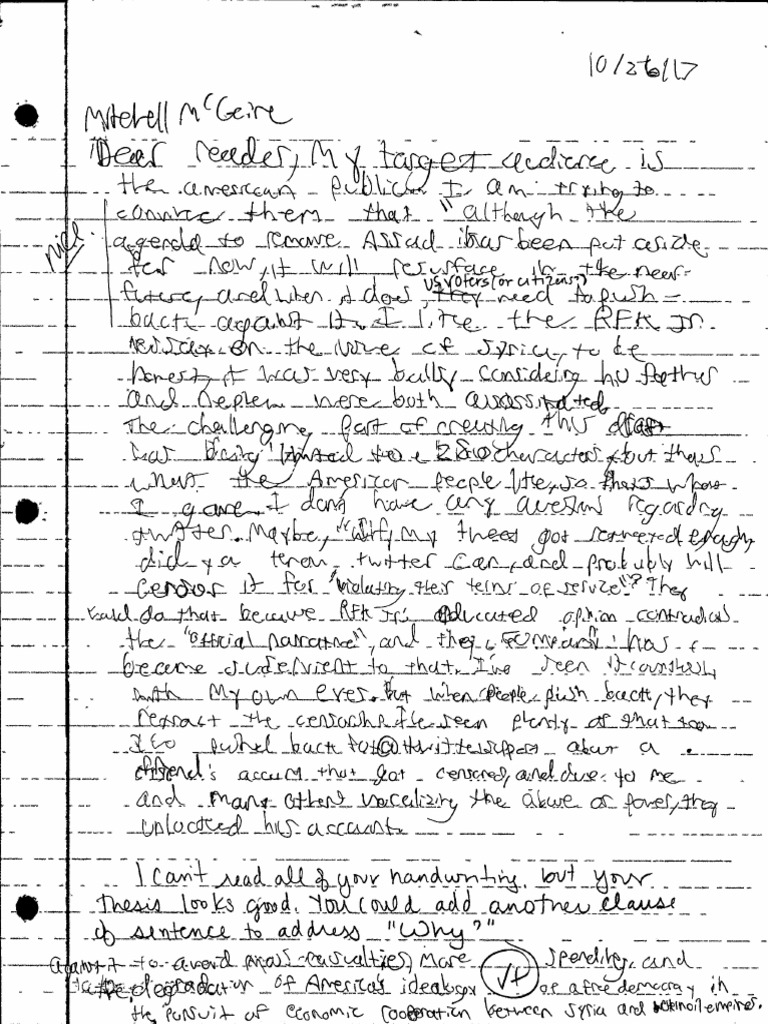 10/26/17
Mitchell McGeire
Dear reader, My target audience is
the american public. I am trying to
convince them that "although the
nice
agenda to remove Assad has been put aside
for now, it will resurface in the near
us voters (or citizens?)
future, and when it does, they need to push
back against it. I like the RFK Jr.
on the of Syria, to be
honest, it was very considering his father
and were both assassinated.
The challenging part of creating this
was being limited to 280 characters, but that's
what the American people like, so that's what
I gave. I don't have any questions regarding
twitter. Maybe, "why my got
did a twitter can, and probably will
censor it for "violating their terms of service"? They
would do that because RFK Jr's educated opinion contradicts
the "official narrative", and the company has
become subservient to that. I've seen it countlessly
with my own eyes. but when people push back, they
retract the censorship. I've seen plenty of that too.
I pushed back to @twittersupport about a
friend's account that got censored, and due to me
and many others vocalizing the abuse of power, they
unlocked his account.
I can't read all of your handwriting, but your
thesis looks good. You could add another clause
of sentence to address "Why?"
against it to avoid mass casualties, more spending, and
√+
the degradation of America's ideology of a free democracy in
the pursuit of economic cooperation between Syria and oil empires.